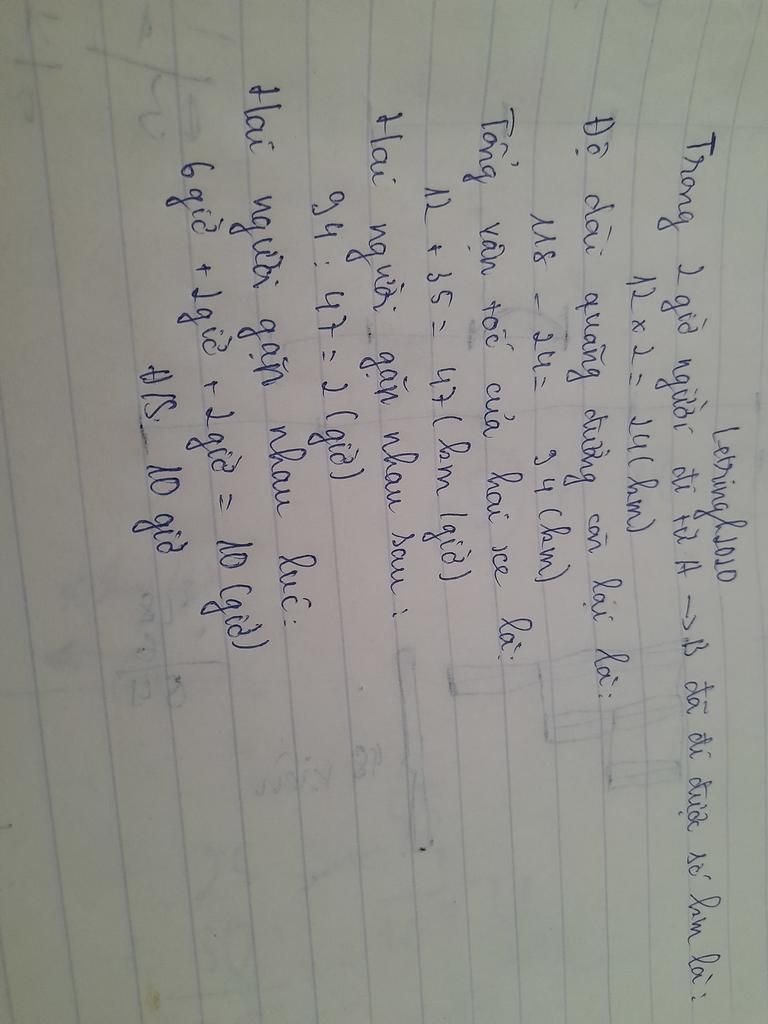 Letringh2010
Trong 2 giờ người đi từ A → B đã đi được số km là:
12 x 2 = 24 (km)
Độ dài quãng đường còn lại là:
118 - 24 = 94 (km)
Tổng vận tốc của hai xe là:
12 + 35 = 47 (km/giờ)
Hai người gặp nhau sau:
94 : 47 = 2 (giờ)
Hai người gặp nhau lúc:
6 giờ + 2 giờ + 2 giờ = 10 (giờ)
Đ/S: 10 giờ